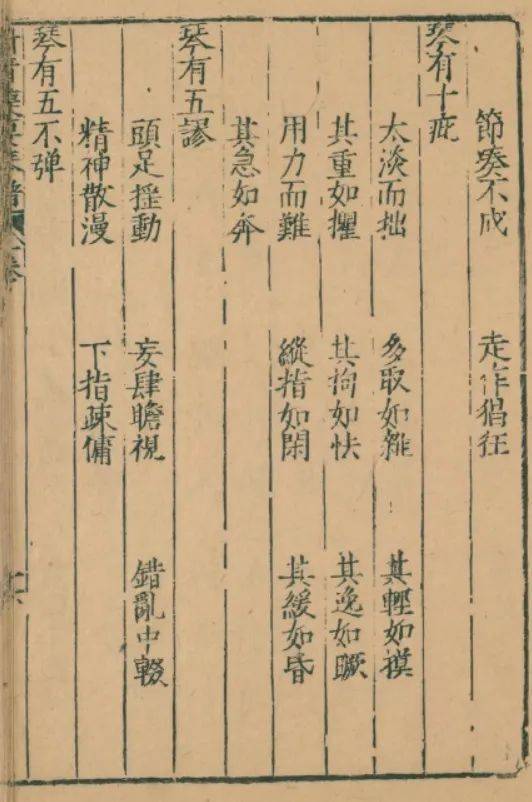 節奏不成　走作猖狂
琴有十疵
太淡而拙　多取如雜　其輕如摸
其重如攫　其拘如怯　其逸如蹶
用力而難　縱指如閑　其緩如昏
其急如奔
琴有五謬
頭足揺動　妄肆瞻視　錯亂中輟
精神散漫　下指疎傭
琴有五不弹